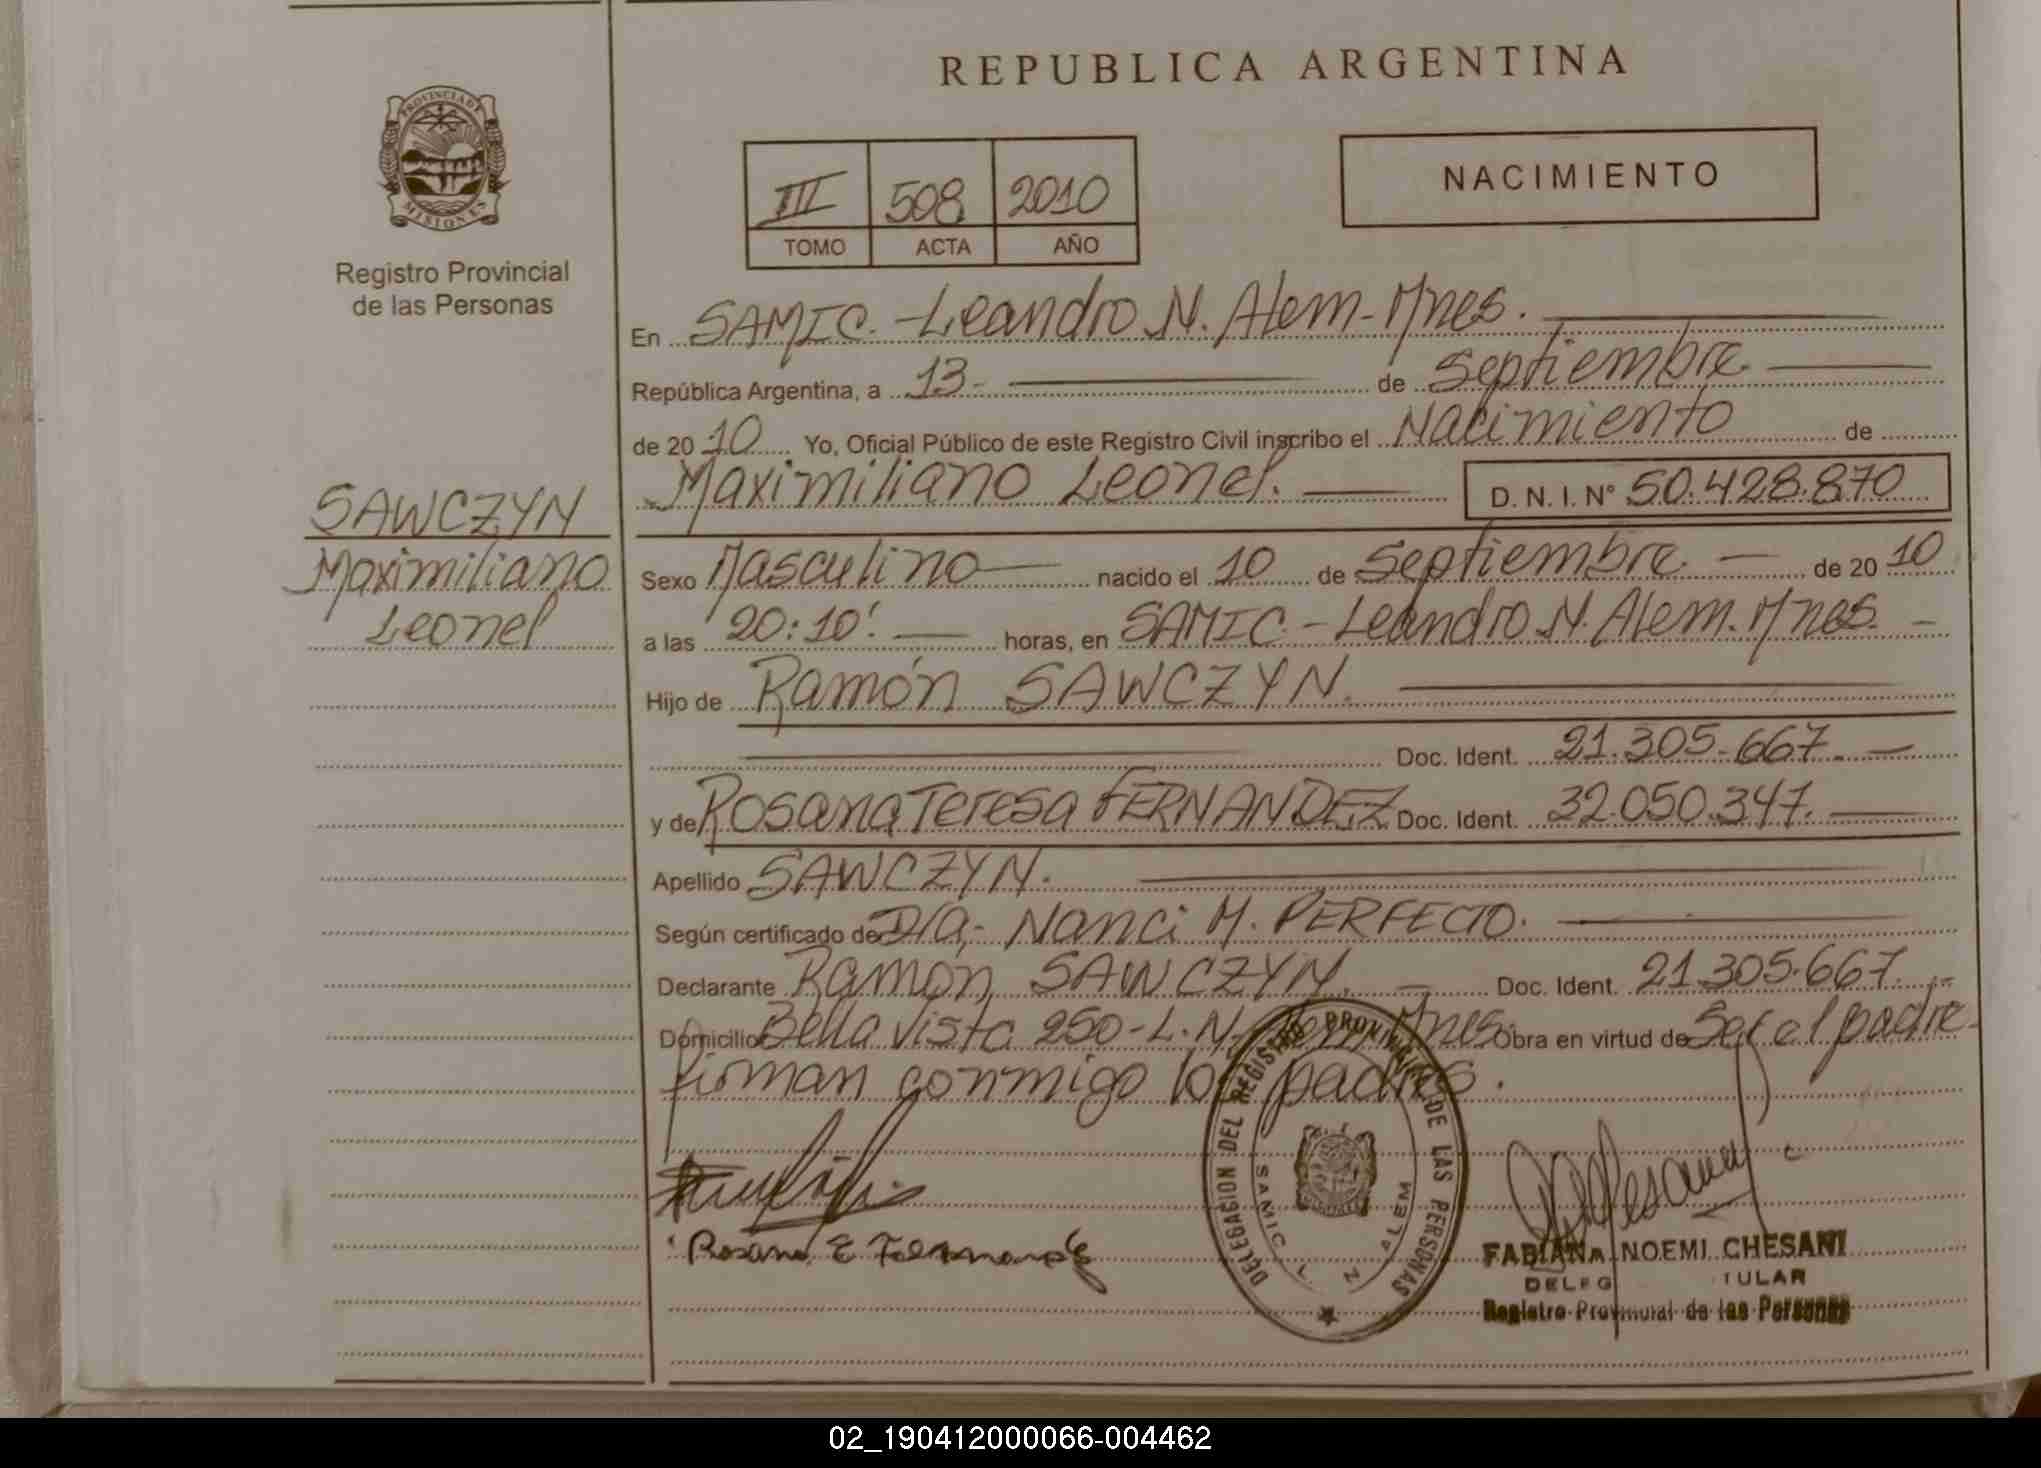 REPUBLICA ARGENTINA
PROVINCIA DE
MISIONES
Registro Provincial
de las Personas
III 508 2010
TOMO ACTA AÑO
NACIMIENTO
En SAMIC.-Leandro N. Alem-Mnes.
República Argentina, a 13- de Septiembre
de 2010 Yo, Oficial Público de este Registro Civil inscribo el Nacimiento de
Maximiliano Leonel. D. N. I. N° 50.428.870
SAWCZYN
Maximiliano
Leonel
Sexo Masculino nacido el 10 de Septiembre de 2010
a las 20:10'. horas, en SAMIC.-Leandro N. Alem. Mnes.
Hijo de Ramón SAWCZYN.
Doc. Ident. 21.305.667.
y de Rosana Teresa FERNANDEZ Doc. Ident. 32.050.347.
Apellido SAWCZYN.
Según certificado de D/a,- Nanci M. PERFECTO.
Declarante Ramón SAWCZYN. Doc. Ident. 21.305.667.
Domicilio Bella Vista 250-L.N. Alem-Mnes. Obra en virtud de Ser el padre-
firman conmigo los padres.
DELEGACION DEL REGISTRO PROVINCIAL DE LAS PERSONAS
SAMIC L N ALEM
FABIANA NOEMI CHESANI
Registro Provincial de las Personas
02_190412000066-004462